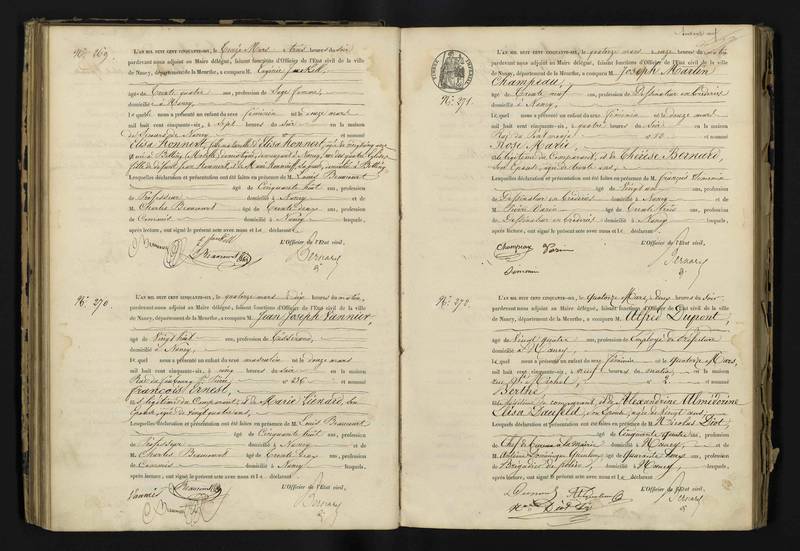 N.º 269.
L'AN MIL HUIT CENT CINQUANTE-SIX, le treize Mars trois heures du soir
pardevant nous adjoint au Maire délégué, faisant fonctions d'Officier de l'Etat civil de la ville
de Nancy, département de la Meurthe, a comparu M. Eugénie
âgé de trente quatre ans, profession de Sage femme,
domicilié à Nancy,
Le quel nous a présenté un enfant du sexe féminin né le douze mars
mil huit cent cinquante-six, à sept heures du soir en la maison
de Secours de Nancy et nommé
Elisa Honnert, fille naturelle d'Elisa Honnert,
Lesquelles déclaration et présentation ont été faites en présence de M. Louis Beaucourt
âgé de Cinquante huit ans, profession
de Professeur domicilié à Nancy et de
M. Charles Beaucourt âgé de trente deux ans, profession
de Commis domicilié à Nancy lesquels,
après lecture, ont signé le présent acte avec nous et le déclarant
L'Officier de l'Etat civil,
Bernard
N.º 270.
L'AN MIL HUIT CENT CINQUANTE-SIX, le quatorze mars dix heures du matin,
pardevant nous adjoint au Maire délégué, faisant fonctions d'Officier de l'Etat civil de la ville
de Nancy, département de la Meurthe, a comparu M. Jean Joseph Vannier,
âgé de Vingt huit ans, profession de
domicilié à Nancy,
Le quel nous a présenté un enfant du sexe masculin né le douze mars
mil huit cent cinquante-six, à cinq heures du soir en la maison
Rue du faubourg St. Pierre nº 236 et nommé
François Ernest,
fils légitime du Comparant, et de Marie Lienard, son
épouse, âgée de vingt quatre ans,
Lesquelles déclaration et présentation ont été faites en présence de M. Louis Beaucourt
âgé de Cinquante huit ans, profession
de Professeur domicilié à Nancy et de
M. Charles Beaucourt âgé de trente deux ans, profession
de Commis domicilié à Nancy lesquels,
après lecture, ont signé le présent acte avec nous et le déclarant
L'Officier de l'Etat civil,
Vannier
Bernard
N.º 271.
L'AN MIL HUIT CENT CINQUANTE-SIX, le quatorze mars à onze heures du matin
pardevant nous adjoint au Maire délégué, faisant fonctions d'Officier de l'Etat civil de la ville
de Nancy, département de la Meurthe, a comparu M. Joseph Martin
Champeau,
âgé de trente neuf ans, profession de Dessinateur en broderies
domicilié à Nancy,
Le quel nous a présenté un enfant du sexe féminin né le douze mars
mil huit cent cinquante-six, à quatre heures du soir en la maison
nº 13 et nommé
Rose Marie,
fille légitime du Comparant, et de Thérèse Bernard,
son épouse, âgée de trente ans,
Lesquelles déclaration et présentation ont été faites en présence de M. François
âgé de Vingt un ans, profession
de Dessinateur en broderies domicilié à Nancy et de
M. âgé de trente trois ans, profession
de Dessinateur en broderies domicilié à Nancy lesquels,
après lecture, ont signé le présent acte avec nous et le déclarant
L'Officier de l'Etat civil,
Champeau
Bernard
N.º 272.
L'AN MIL HUIT CENT CINQUANTE-SIX, le quatorze Mars, deux heures du soir
pardevant nous adjoint au Maire délégué, faisant fonctions d'Officier de l'Etat civil de la ville
de Nancy, département de la Meurthe, a comparu M. Alfred Dupont,
âgé de Vingt quatre ans, profession de Employé de Préfecture
domicilié à Nancy,
Le quel nous a présenté un enfant du sexe féminin né le Quatorze Mars,
mil huit cent cinquante-six, à neuf heures du matin, en la maison
rue St. Michel, nº 2 et nommé
Berthe,
fille légitime du comparant, et de Alexandrine
Elisa son épouse, âgée de vingt ans,
Lesquelles déclaration et présentation ont été faites en présence de M. Nicolas Diot
âgé de Cinquante quatre ans, profession
de Chef de Bureau à la mairie domicilié à Nancy, et de
M. Dominique âgé de quarante deux ans, profession
de Brigadier de police, domicilié à Nancy lesquels,
après lecture, ont signé le présent acte avec nous et le déclarant
L'Officier de l'Etat civil,
Bernard